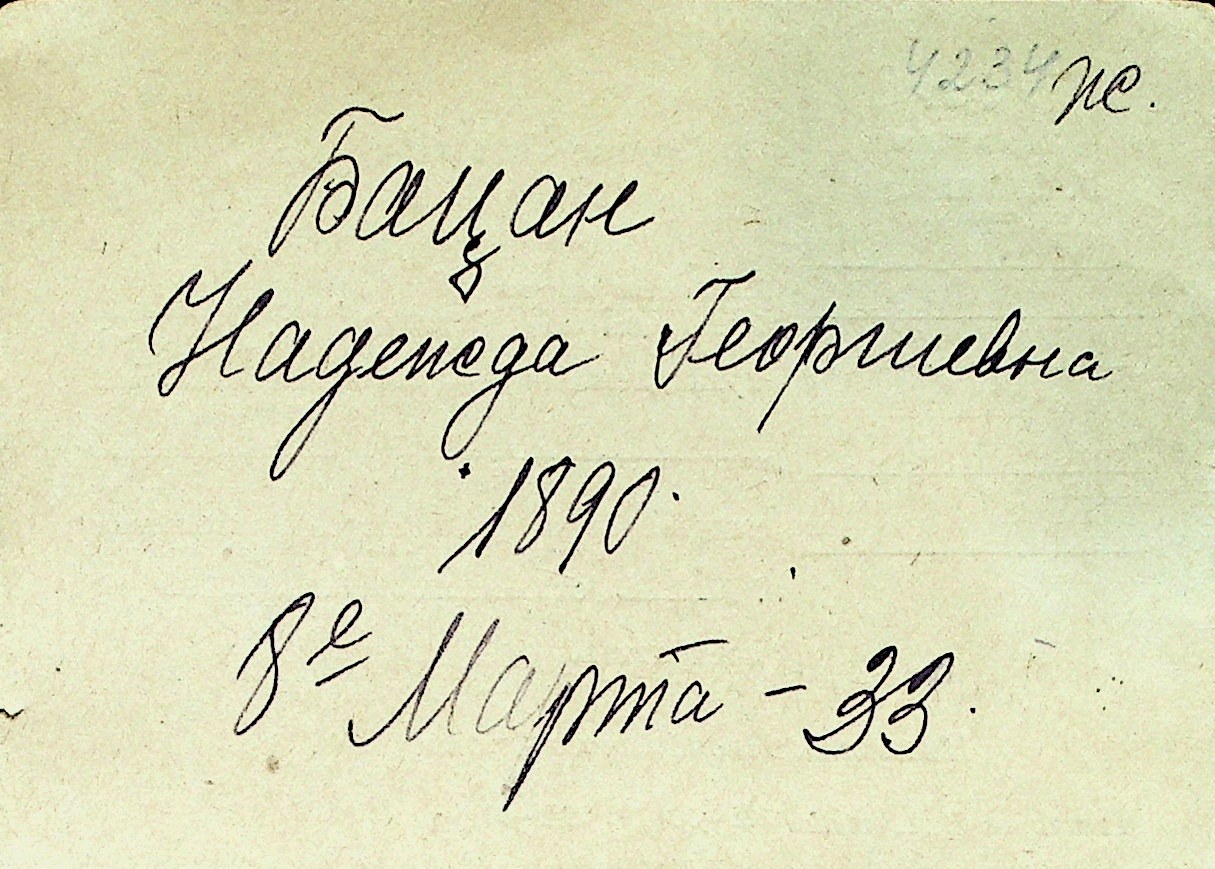 4234 ж.
Бацан
Надежда Георгиевна
1890.
8е Марта - 33.